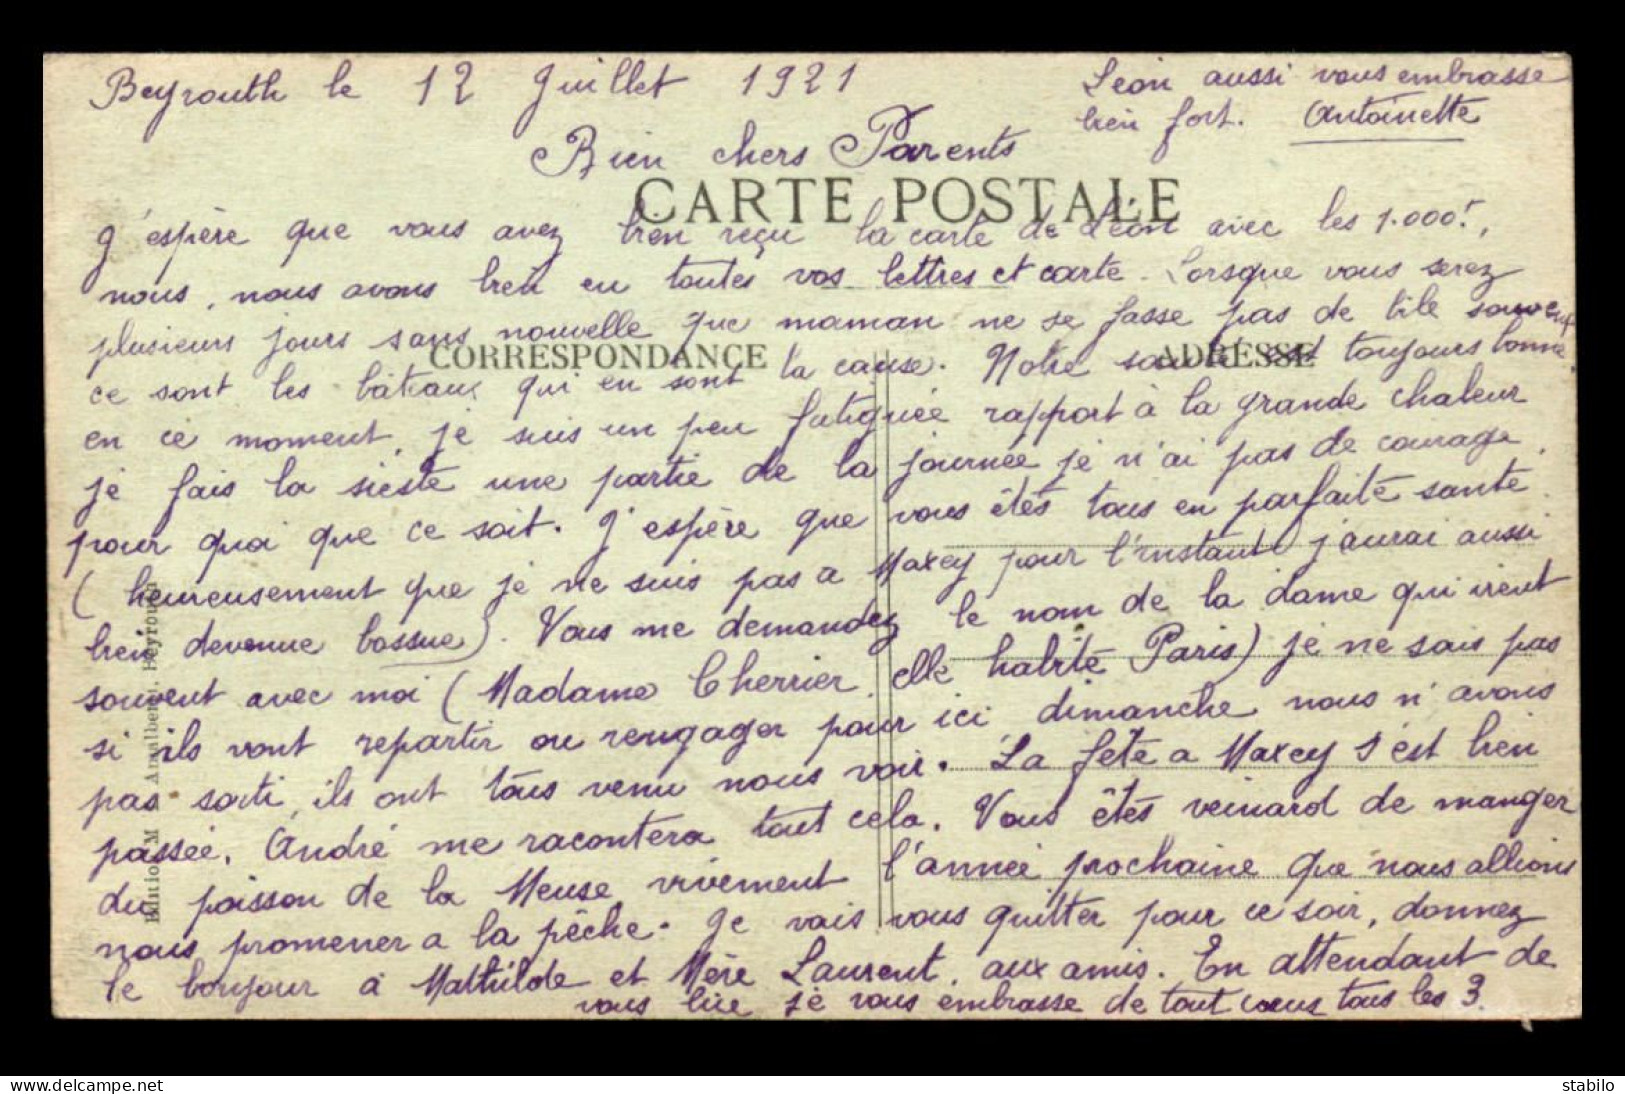 Beyrouth le 12 Juillet 1921
Bien chers Parents
CARTE POSTALE
CORRESPONDANCE
ADRESSE
J'espère que vous avez bien reçu la carte de Léon avec les 1.000f,
nous, nous avons bien eu toutes vos lettres et carte. Lorsque vous serez
plusieurs jours sans nouvelle que maman ne se fasse pas de bile souvent
ce sont les bâteaux qui en sont la cause. Notre santé est toujours bonne
en ce moment, je suis un peu fatiguée rapport à la grande chaleur
je fais la sieste une partie de la journée je n'ai pas de courage
pour quoi que ce soit. J'espère que vous êtes tous en parfaite santé
(heureusement que je ne suis pas a Maxey pour l'instant j'aurai aussi
bien devenue bossue). Vous me demandez le nom de la dame qui vient
souvent avec moi (Madame Cherrier, elle habite Paris) je ne sais pas
si ils vont repartir ou rengager pour ici dimanche nous n'avons
pas sorti, ils ont tous venu nous voir. La fête a Maxey s'est bien
passée. André me racontera tout cela. Vous êtes veinard de manger
du poisson de la Meuse vivement l'année prochaine que nous allions
nous promener a la pêche. Je vais vous quitter pour ce soir, donnez
le bonjour à Mathilde et Mère Laurent, aux amis. En attendant de
vous lire je vous embrasse de tout cœur tous les 3.
Léon aussi vous embrasse
bien fort. Antoinette
Beyrouth
delcampe.net
stabilo